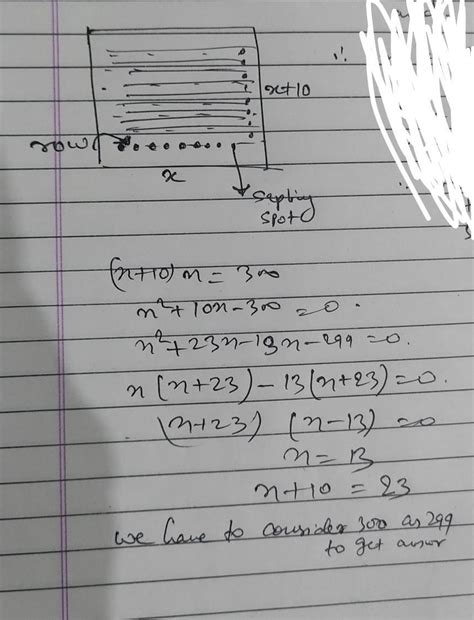 ∴
x+10
row
x
sapling
spot
(x+10)x = 300
x²+10x-300 = 0.
x²+23x-13x-299 = 0.
x(x+23)-13(x+23)=0.
(x+23) (x-13) = 0
x = 13
x+10 = 23
we have to consider 300 as 299
to get answr